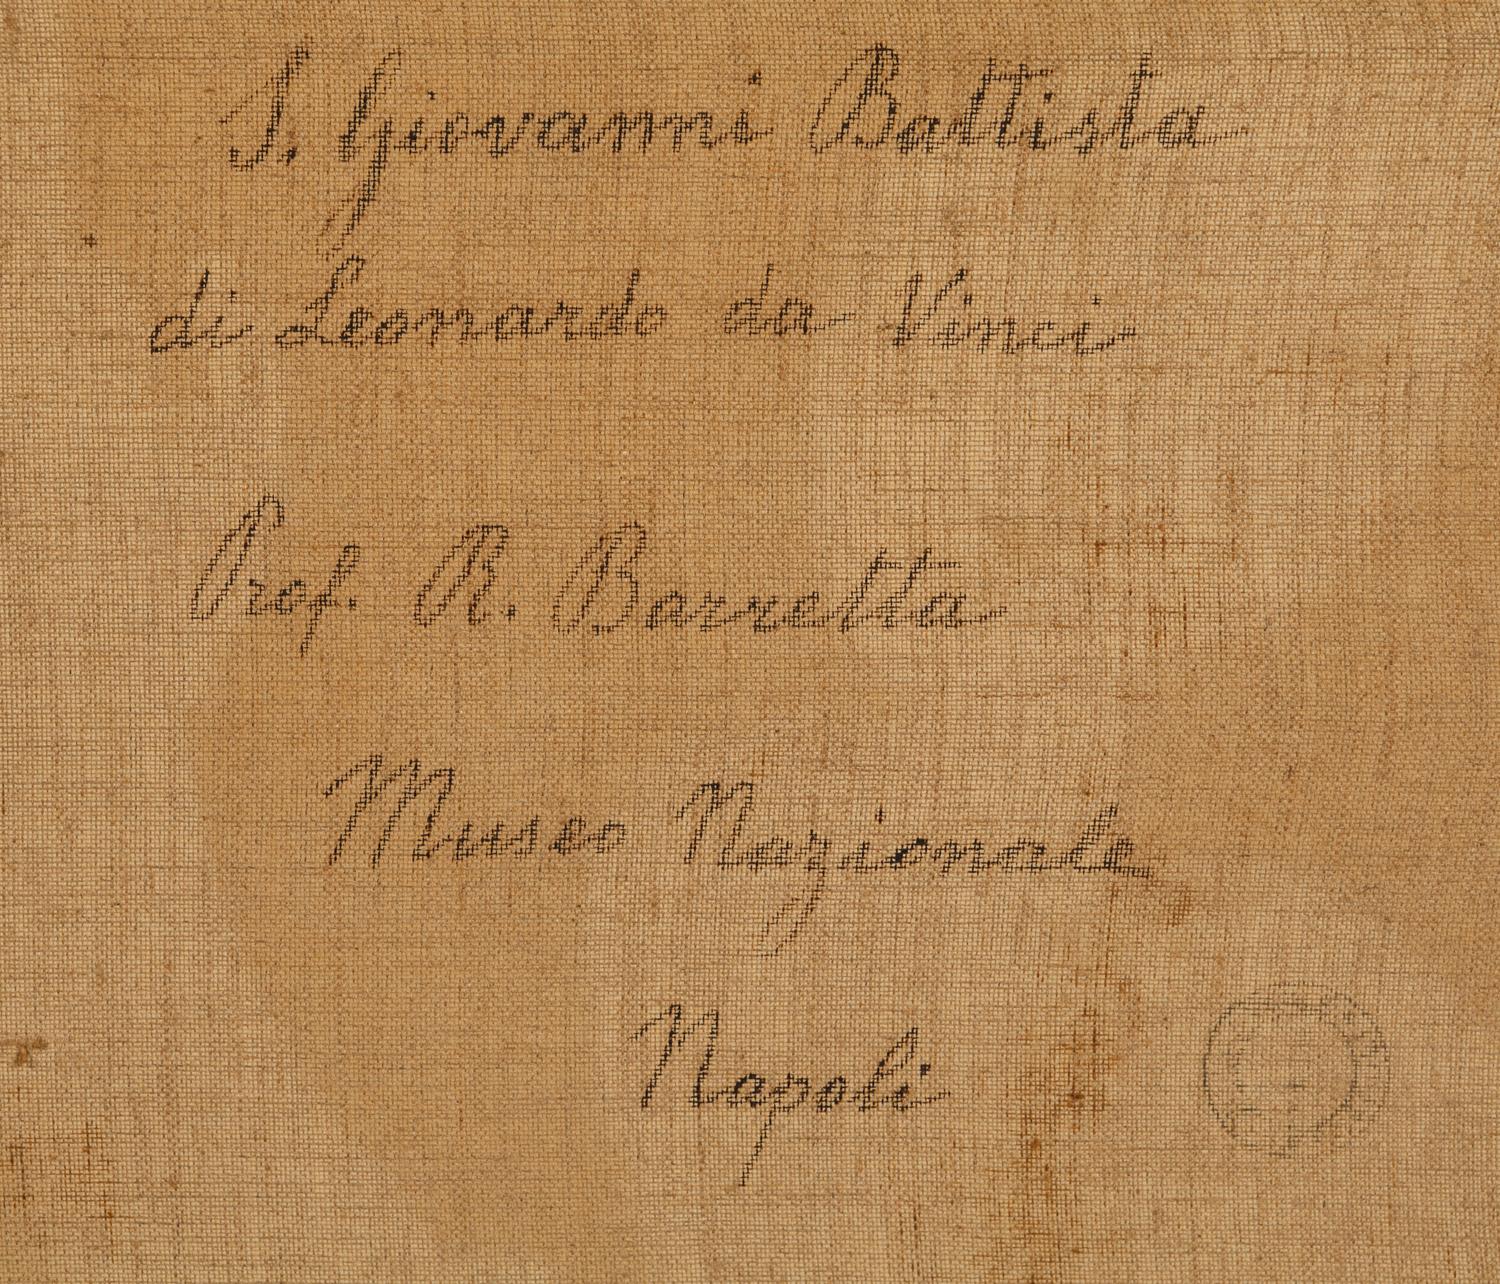 S. Giovanni Battista
di Leonardo da Vinci
Prof. R. Barretta
Museo Nazionale
Napoli